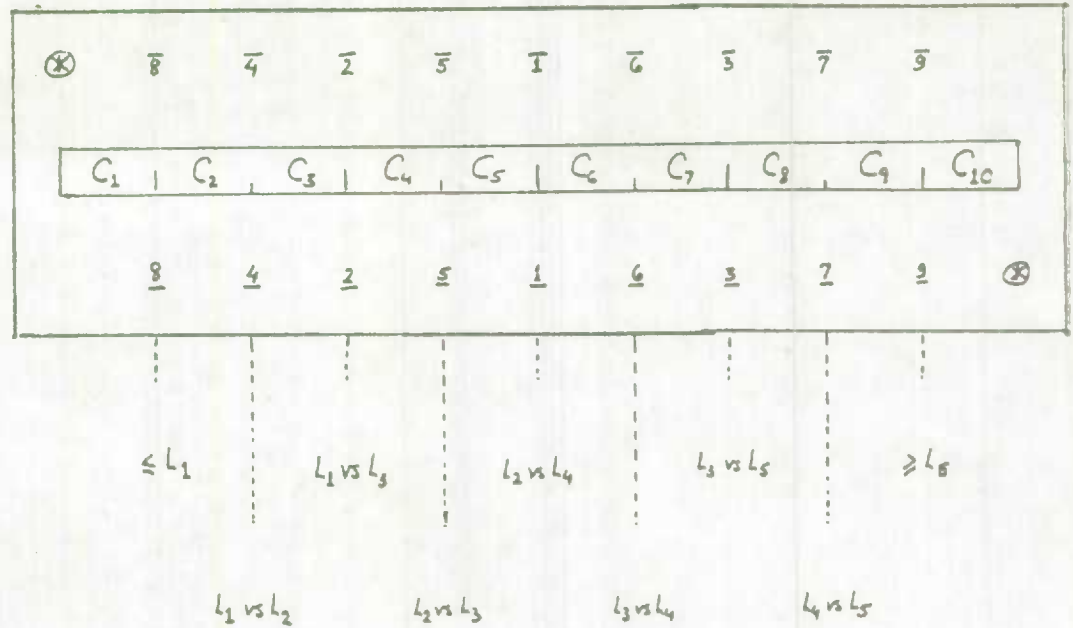 ⊛ 8̅ 4̅ 2̅ 5̅ 1̅ 6̅ 3̅ 7̅ 9̅
C₁ C₂ C₃ C₄ C₅ C₆ C₇ C₈ C₉ C₁₀
8̲ 4̲ 2̲ 5̲ 1̲ 6̲ 3̲ 7̲ 9̲ ⊛
≤ L₁ L₁ vs L₃ L₂ vs L₄ L₃ vs L₅ ≥ L₅
L₁ vs L₂ L₂ vs L₃ L₃ vs L₄ L₄ vs L₅